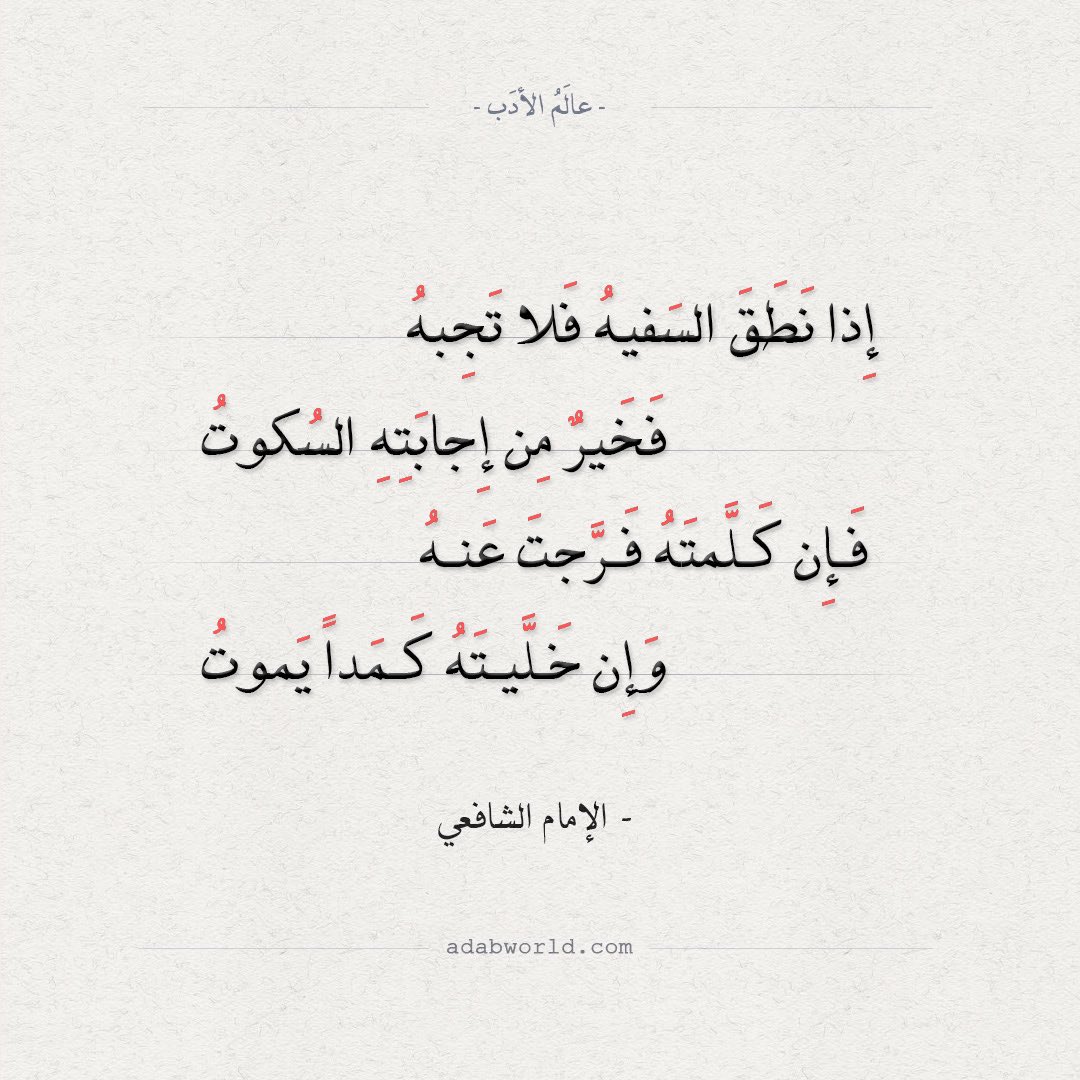 - عالَمُ الأدَب -
إِذا نَطَقَ السَفيهُ فَلا تَجِبهُ
فَخَيرٌ مِن إِجابَتِهِ السُكوتُ
فَـإِن كَـلَّمتَهُ فَـرَّجتَ عَنـهُ
وَإِن خَـلَّيـتَهُ كَـمَداً يَموتُ
- الإمام الشافعي
adabworld.com